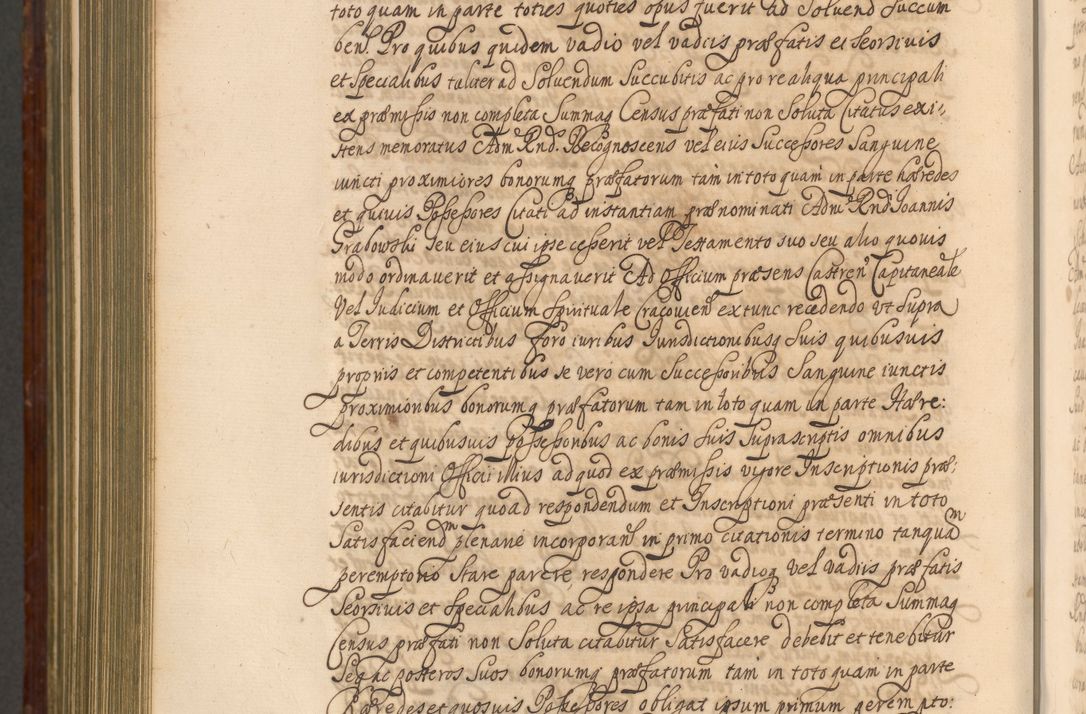 toto quam in parte toties quoties opus fuerit ad Solvend Succum
ben. Pro quibus quidem vadio vel vadiis præfatis et seorsivis
et Specialibus taliter ad Solvendum Succubitis ac pro re aliqua principali
ex præmissis non completa Summaq Census præfati non Soluta Citatus exi:
stens memoratus Adm Rnds Recognoscens vel eius Successores Sanguine
iuncti proximiores bonorumq præfatorum tam in toto quam in parte hæredes
et quivis Possessores Citati ad instantiam prænominati Adm Rnd Ioannis
Grabowski seu eius cui ipse cesserit vel Testamento suo seu alio quovis
modo ordinaverit et assignaverit Ad Officium præsens Castren Capitaneale
Vel Iudicium et Officium Spirituale Cracovien extunc recedendo ut Supra
a Terris Districtibus foro iuribus Iurisdictionibusq Suis quibusvis
propriis et competentibus se vero cum Successoribus Sanguine iunctis
proximioribus bonorumq præfatorum tam in toto quam in parte Hære:
dibus et quibusvis possessoribus ac bonis suis Suprascriptis omnibus
iurisdictioni Officii illius ad quod ex præmissis vigore Inscriptionis præ:
sentis citabitur quoad respondendum et Inscriptioni præsenti in toto
Satisfaciendm plenarie incorporan in primo citationis termino tanquam
peremptorio Stare parere respondere Pro vadioq vel vadiis præfatis
Seorsivis et Specialibus ac re ipsa principali non completa Summaq
Census præfati non Soluta citabitur Satisfacere debebit et tenebitur
Seq ac posteros Suos bonorumq præfatorum tam in toto quam in parte
Hæredes et quosvis Possessores obligat ipsum primum perempto: